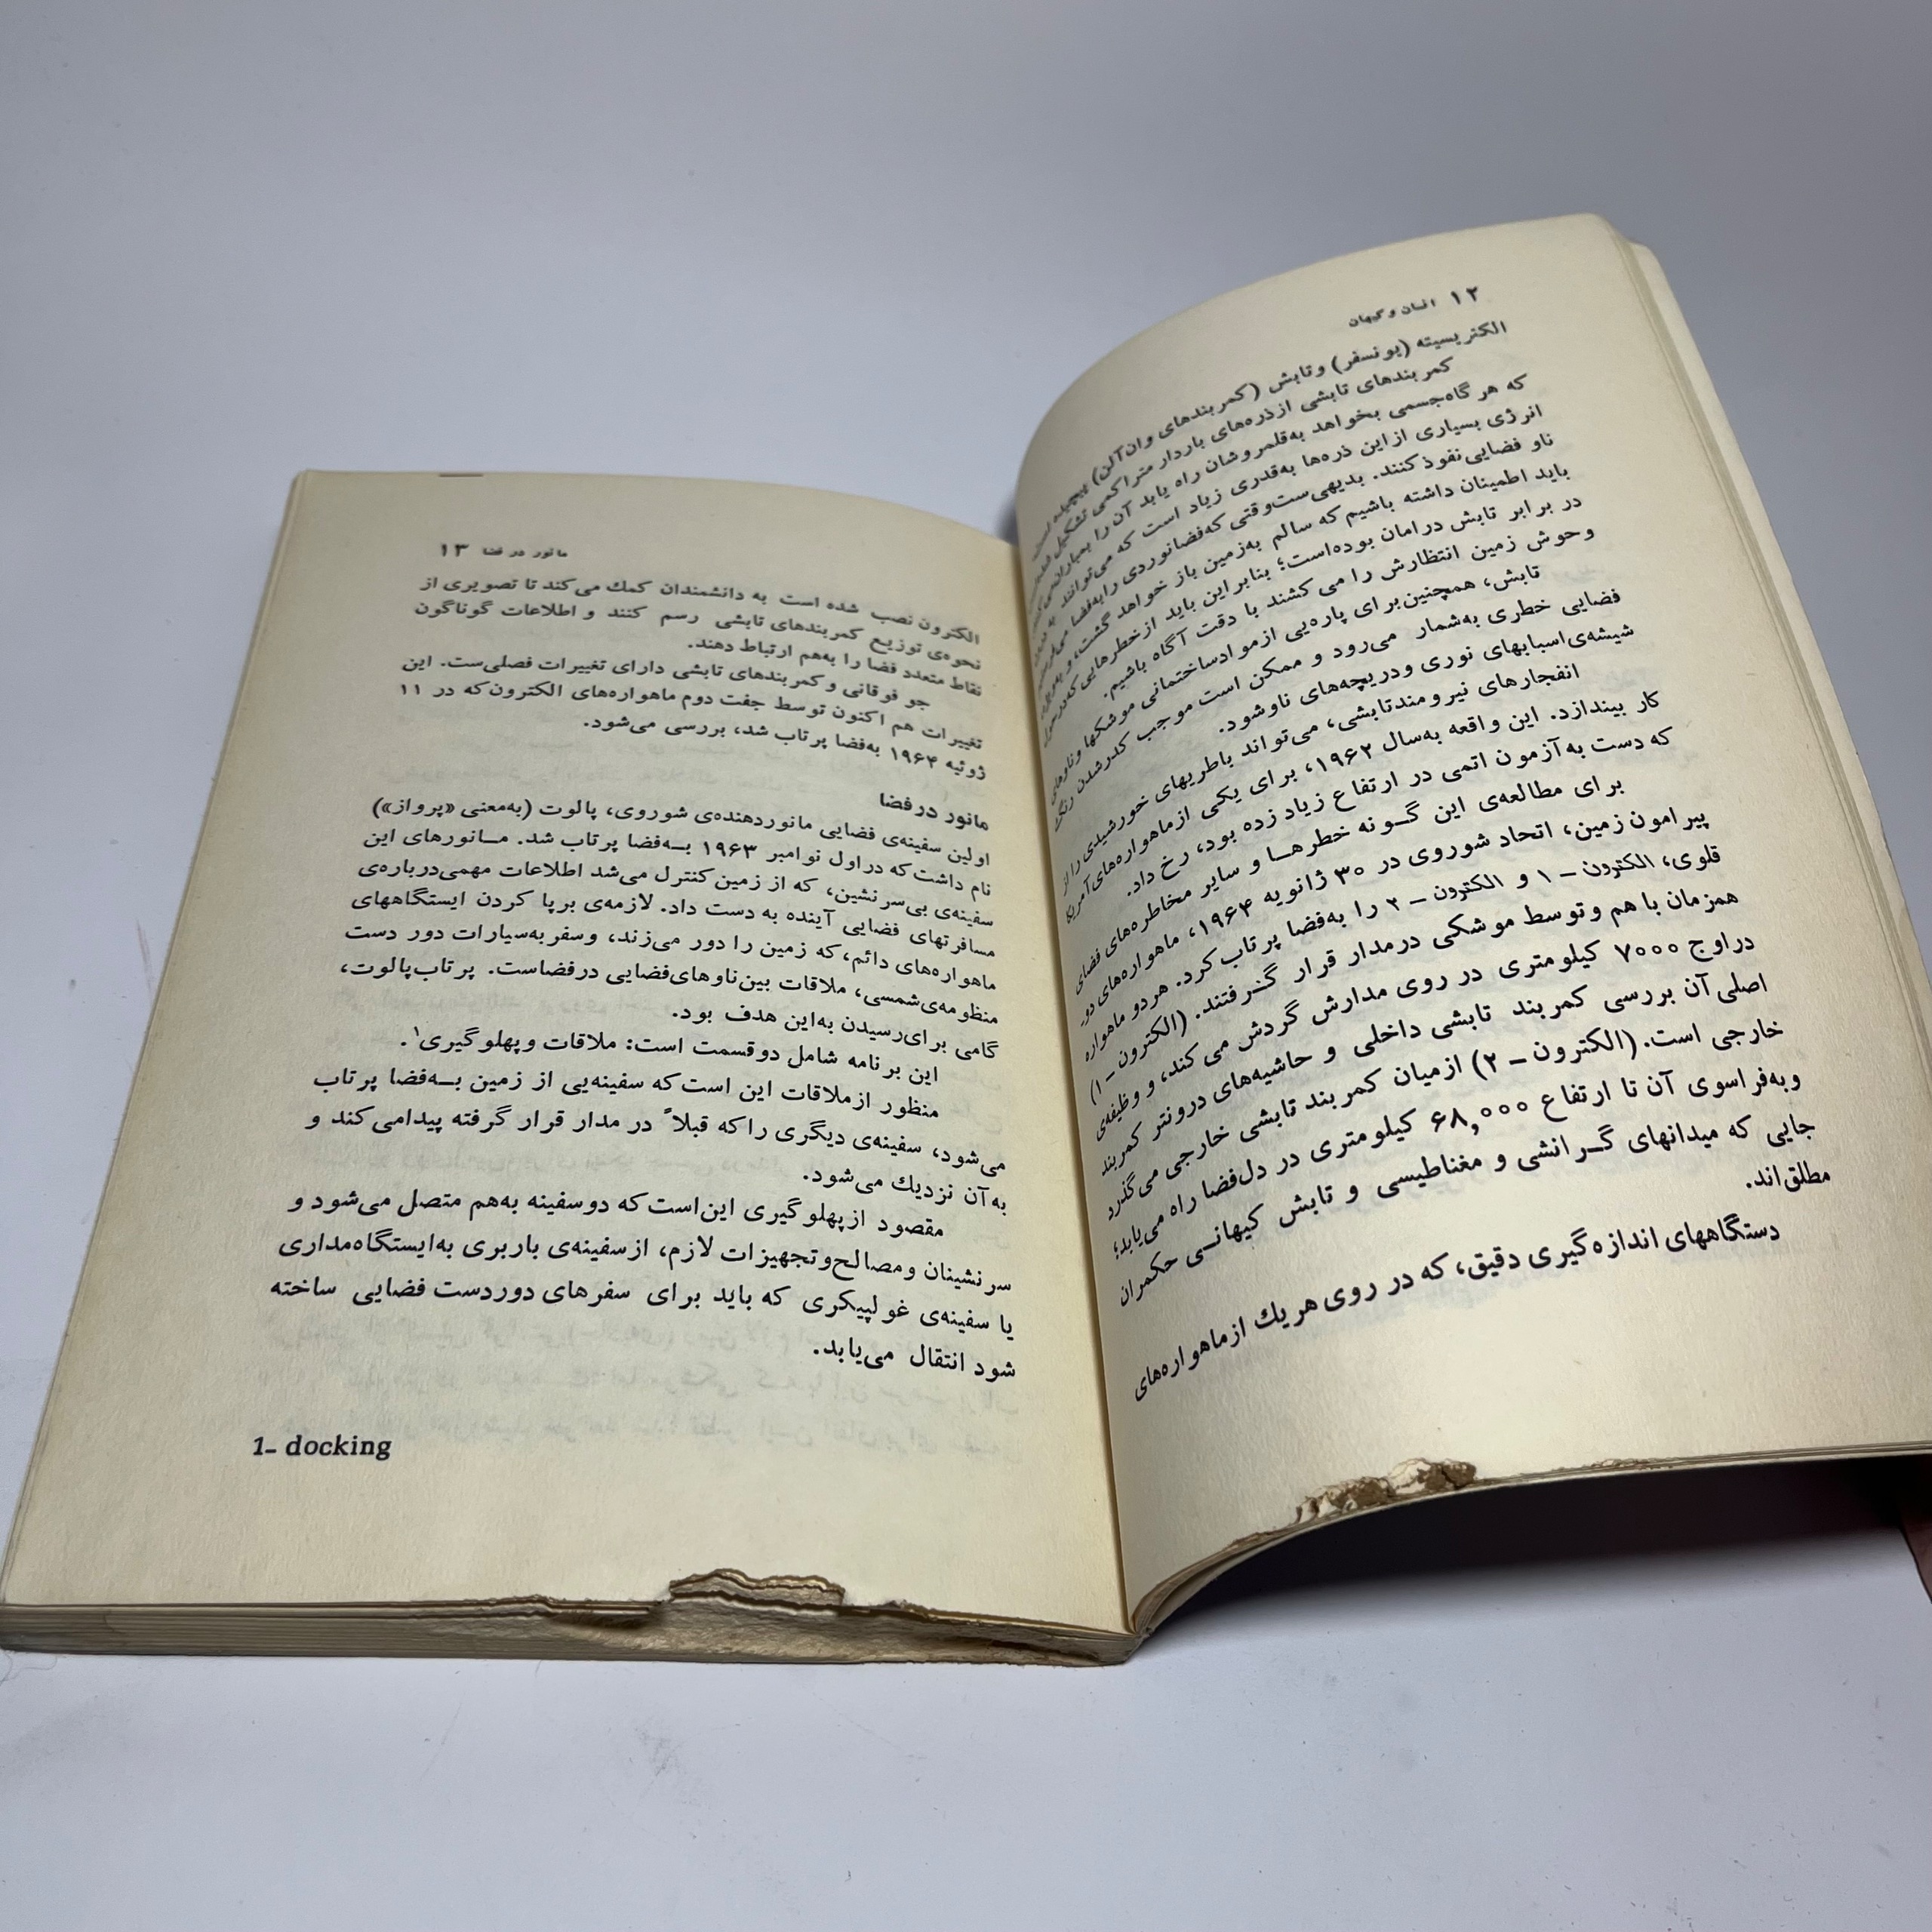 ۱۲ انسان و کیهان
الکتریسیته (یونسفر) و تابش (کمربندهای وان‌آلن) پیچیده است.
کمربندهای تابشی از ذره‌های باردار متراکمی تشکیل شده‌اند
که هرگاه جسمی بخواهد به‌قلمروشان راه یابد آن را بمباران می‌کنند.
انرژی بسیاری از این ذره‌ها به‌قدری زیاد است که می‌توانند به درون
ناو فضایی نفوذ کنند. بدیهی‌ست وقتی که فضانوردی را به‌فضا می‌فرستیم
باید اطمینان داشته باشیم که سالم به‌زمین باز خواهد گشت، و
در برابر تابش در امان بوده‌است؛ بنابراین باید از خطرهایی که در سوی
وحوش زمین انتظارش را می‌کشند با دقت آگاه باشیم.
تابش، همچنین برای پاره‌یی از مواد ساختمانی موشکها و ناوهای
فضایی خطری به‌شمار می‌رود و ممکن است موجب کدر شدن رنگ
شیشه‌ی اسبابهای نوری و دریچه‌های ناو شود.
انفجارهای نیرومند تابشی، می‌تواند باطریهای خورشیدی را از
کار بیندازد. این واقعه به‌سال ۱۹۶۳، برای یکی از ماهواره‌های آمریکا
که دست به آزمون اتمی در ارتفاع زیاد زده بود، رخ داد.
برای مطالعه‌ی این گونه خطرها و سایر مخاطره‌های فضای
پیرامون زمین، اتحاد شوروی در ۳۰ ژانویه ۱۹۶۴، ماهواره‌های دو
قلوی، الکترون – ۱ و الکترون – ۲ را به‌فضا پرتاب کرد. هر دو ماهواره
همزمان با هم و توسط موشکی در مدار قرار گرفتند. (الکترون – ۱)
در اوج ۷۰۰۰ کیلومتری در روی مدارش گردش می‌کند، و وظیفه‌ی
اصلی آن بررسی کمربند تابشی داخلی و حاشیه‌های درونتر کمربند
خارجی است. (الکترون – ۲) از میان کمربند تابشی خارجی می‌گذرد
و به‌فراسوی آن تا ارتفاع ۶۸,۰۰۰ کیلومتری در دل فضا راه می‌یابد؛
جایی که میدانهای گرانشی و مغناطیسی و تابش کیهانی حکمران
مطلق‌اند.
دستگاههای اندازه‌گیری دقیق، که در روی هریك از ماهواره‌های
مانور در فضا ۱۳
الکترون نصب شده است به دانشمندان کمك می‌کند تا تصویری از
نحوه‌ی توزیع کمربندهای تابشی رسم کنند و اطلاعات گوناگون
نقاط متعدد فضا را به‌هم ارتباط دهند.
جو فوقانی و کمربندهای تابشی دارای تغییرات فصلی‌ست. این
تغییرات هم اکنون توسط جفت دوم ماهواره‌های الکترون که در ۱۱
ژوئیه ۱۹۶۴ به‌فضا پرتاب شد، بررسی می‌شود.
مانور در فضا
اولین سفینه‌ی فضایی مانوردهنده‌ی شوروی، پالوت (به‌معنی «پرواز»)
نام داشت که در اول نوامبر ۱۹۶۳ به‌فضا پرتاب شد. مانورهای این
سفینه‌ی بی‌سرنشین، که از زمین کنترل می‌شد اطلاعات مهمی درباره‌ی
مسافرتهای فضایی آینده به دست داد. لازمه‌ی برپا کردن ایستگاههای
ماهواره‌های دائم، که زمین را دور می‌زند، و سفر به‌سیارات دور دست
منظومه‌ی شمسی، ملاقات بین ناوهای فضایی در فضاست. پرتاب پالوت،
گامی برای رسیدن به‌این هدف بود.
این برنامه شامل دو قسمت است: ملاقات و پهلوگیری۱.
منظور از ملاقات این است که سفینه‌یی از زمین به‌فضا پرتاب
می‌شود، سفینه‌ی دیگری را که قبلاً در مدار قرار گرفته پیدا می‌کند و
به آن نزدیك می‌شود.
مقصود از پهلوگیری این‌است که دو سفینه به‌هم متصل می‌شود و
سرنشینان و مصالح و تجهیزات لازم، از سفینه‌ی باربری به‌ایستگاه مداری
یا سفینه‌ی غولپیکری که باید برای سفرهای دوردست فضایی ساخته
شود انتقال می‌یابد.
1– docking